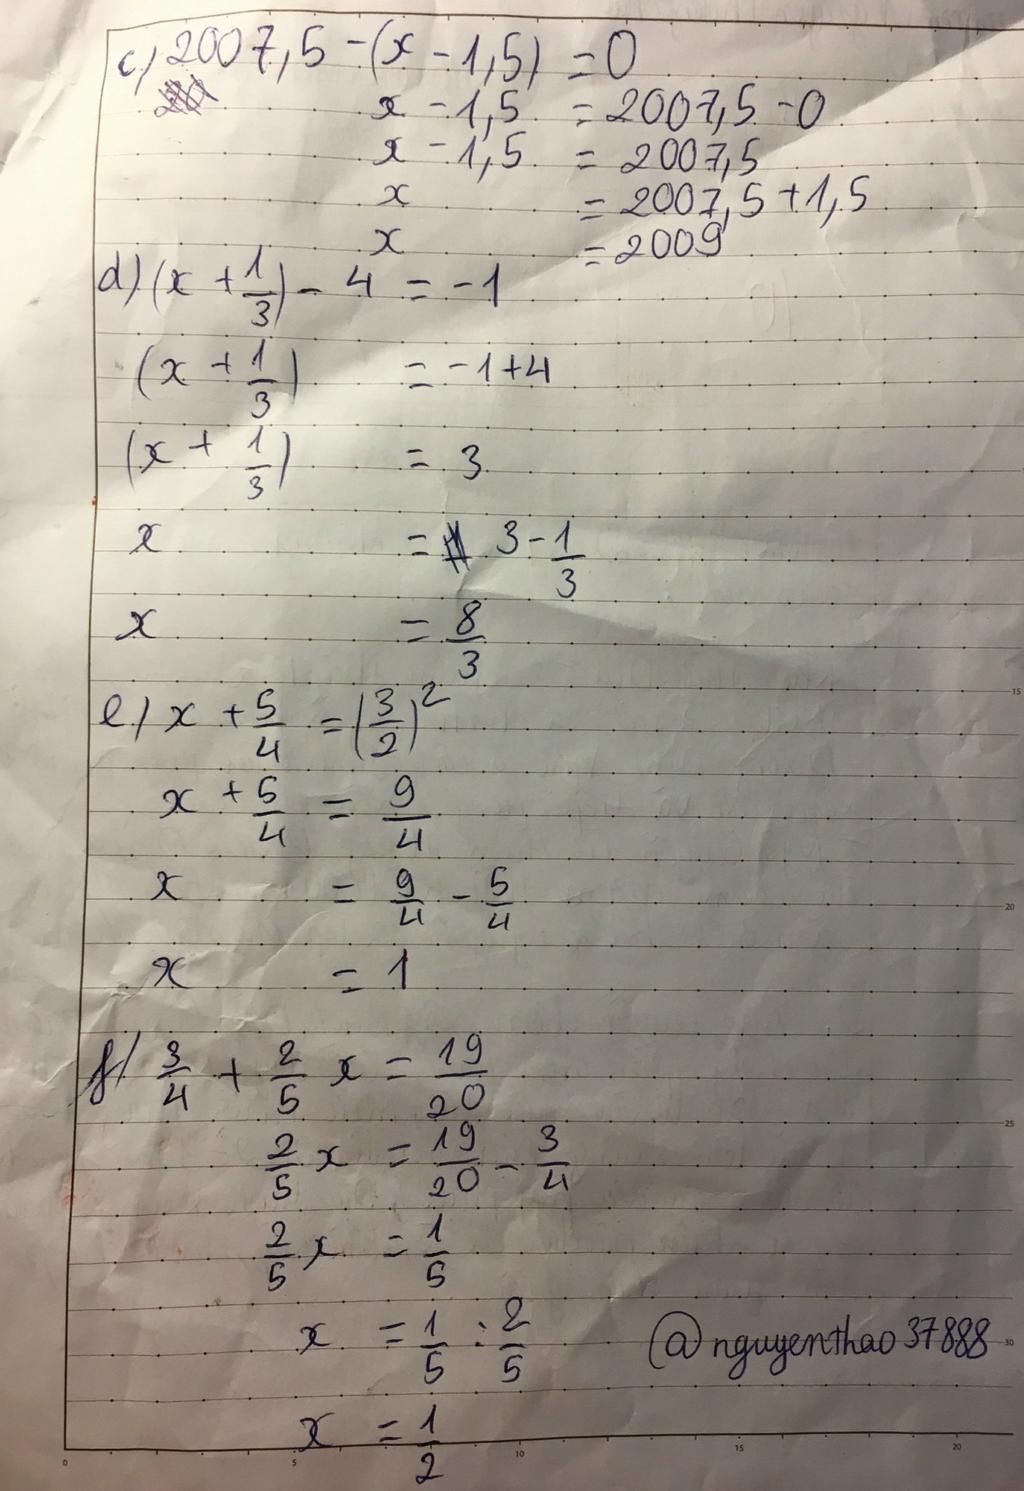 c) 2007,5 - (x - 1,5) = 0
x - 1,5 = 2007,5 - 0
x - 1,5 = 2007,5
x = 2007,5 + 1,5
x = 2009
d) (x + 1/3) - 4 = -1
(x + 1/3) = -1 + 4
(x + 1/3) = 3
x = 3 - 1/3
x = 8/3
e) x + 5/4 = (3/2)²
x + 5/4 = 9/4
x = 9/4 - 5/4
x = 1
f) 3/4 + 2/5 x = 19/20
2/5 x = 19/20 - 3/4
2/5 x = 1/5
x = 1/5 : 2/5
@nguyenthao37888
x = 1/2
15
20
25
30
0 5 10 15 20